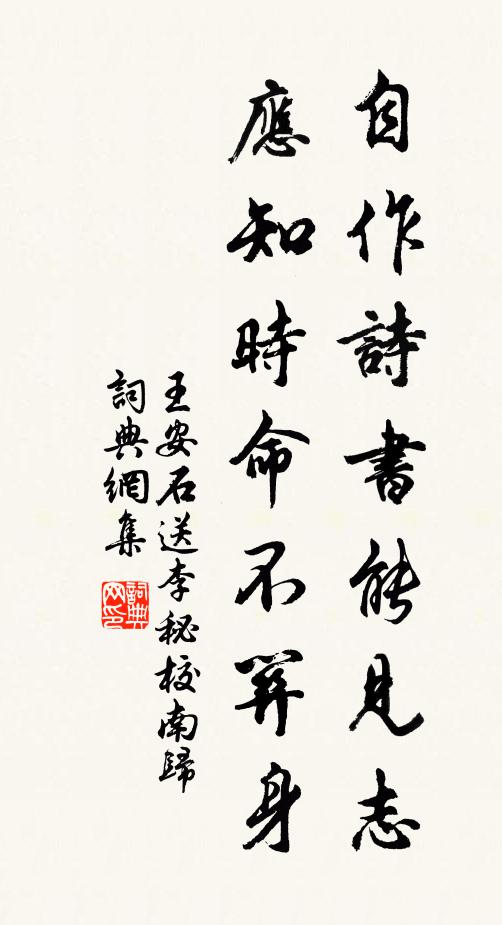 自作詩書能見志
應知時命不關身
王安石送李秘校南歸
詞典網集
詞典
网印